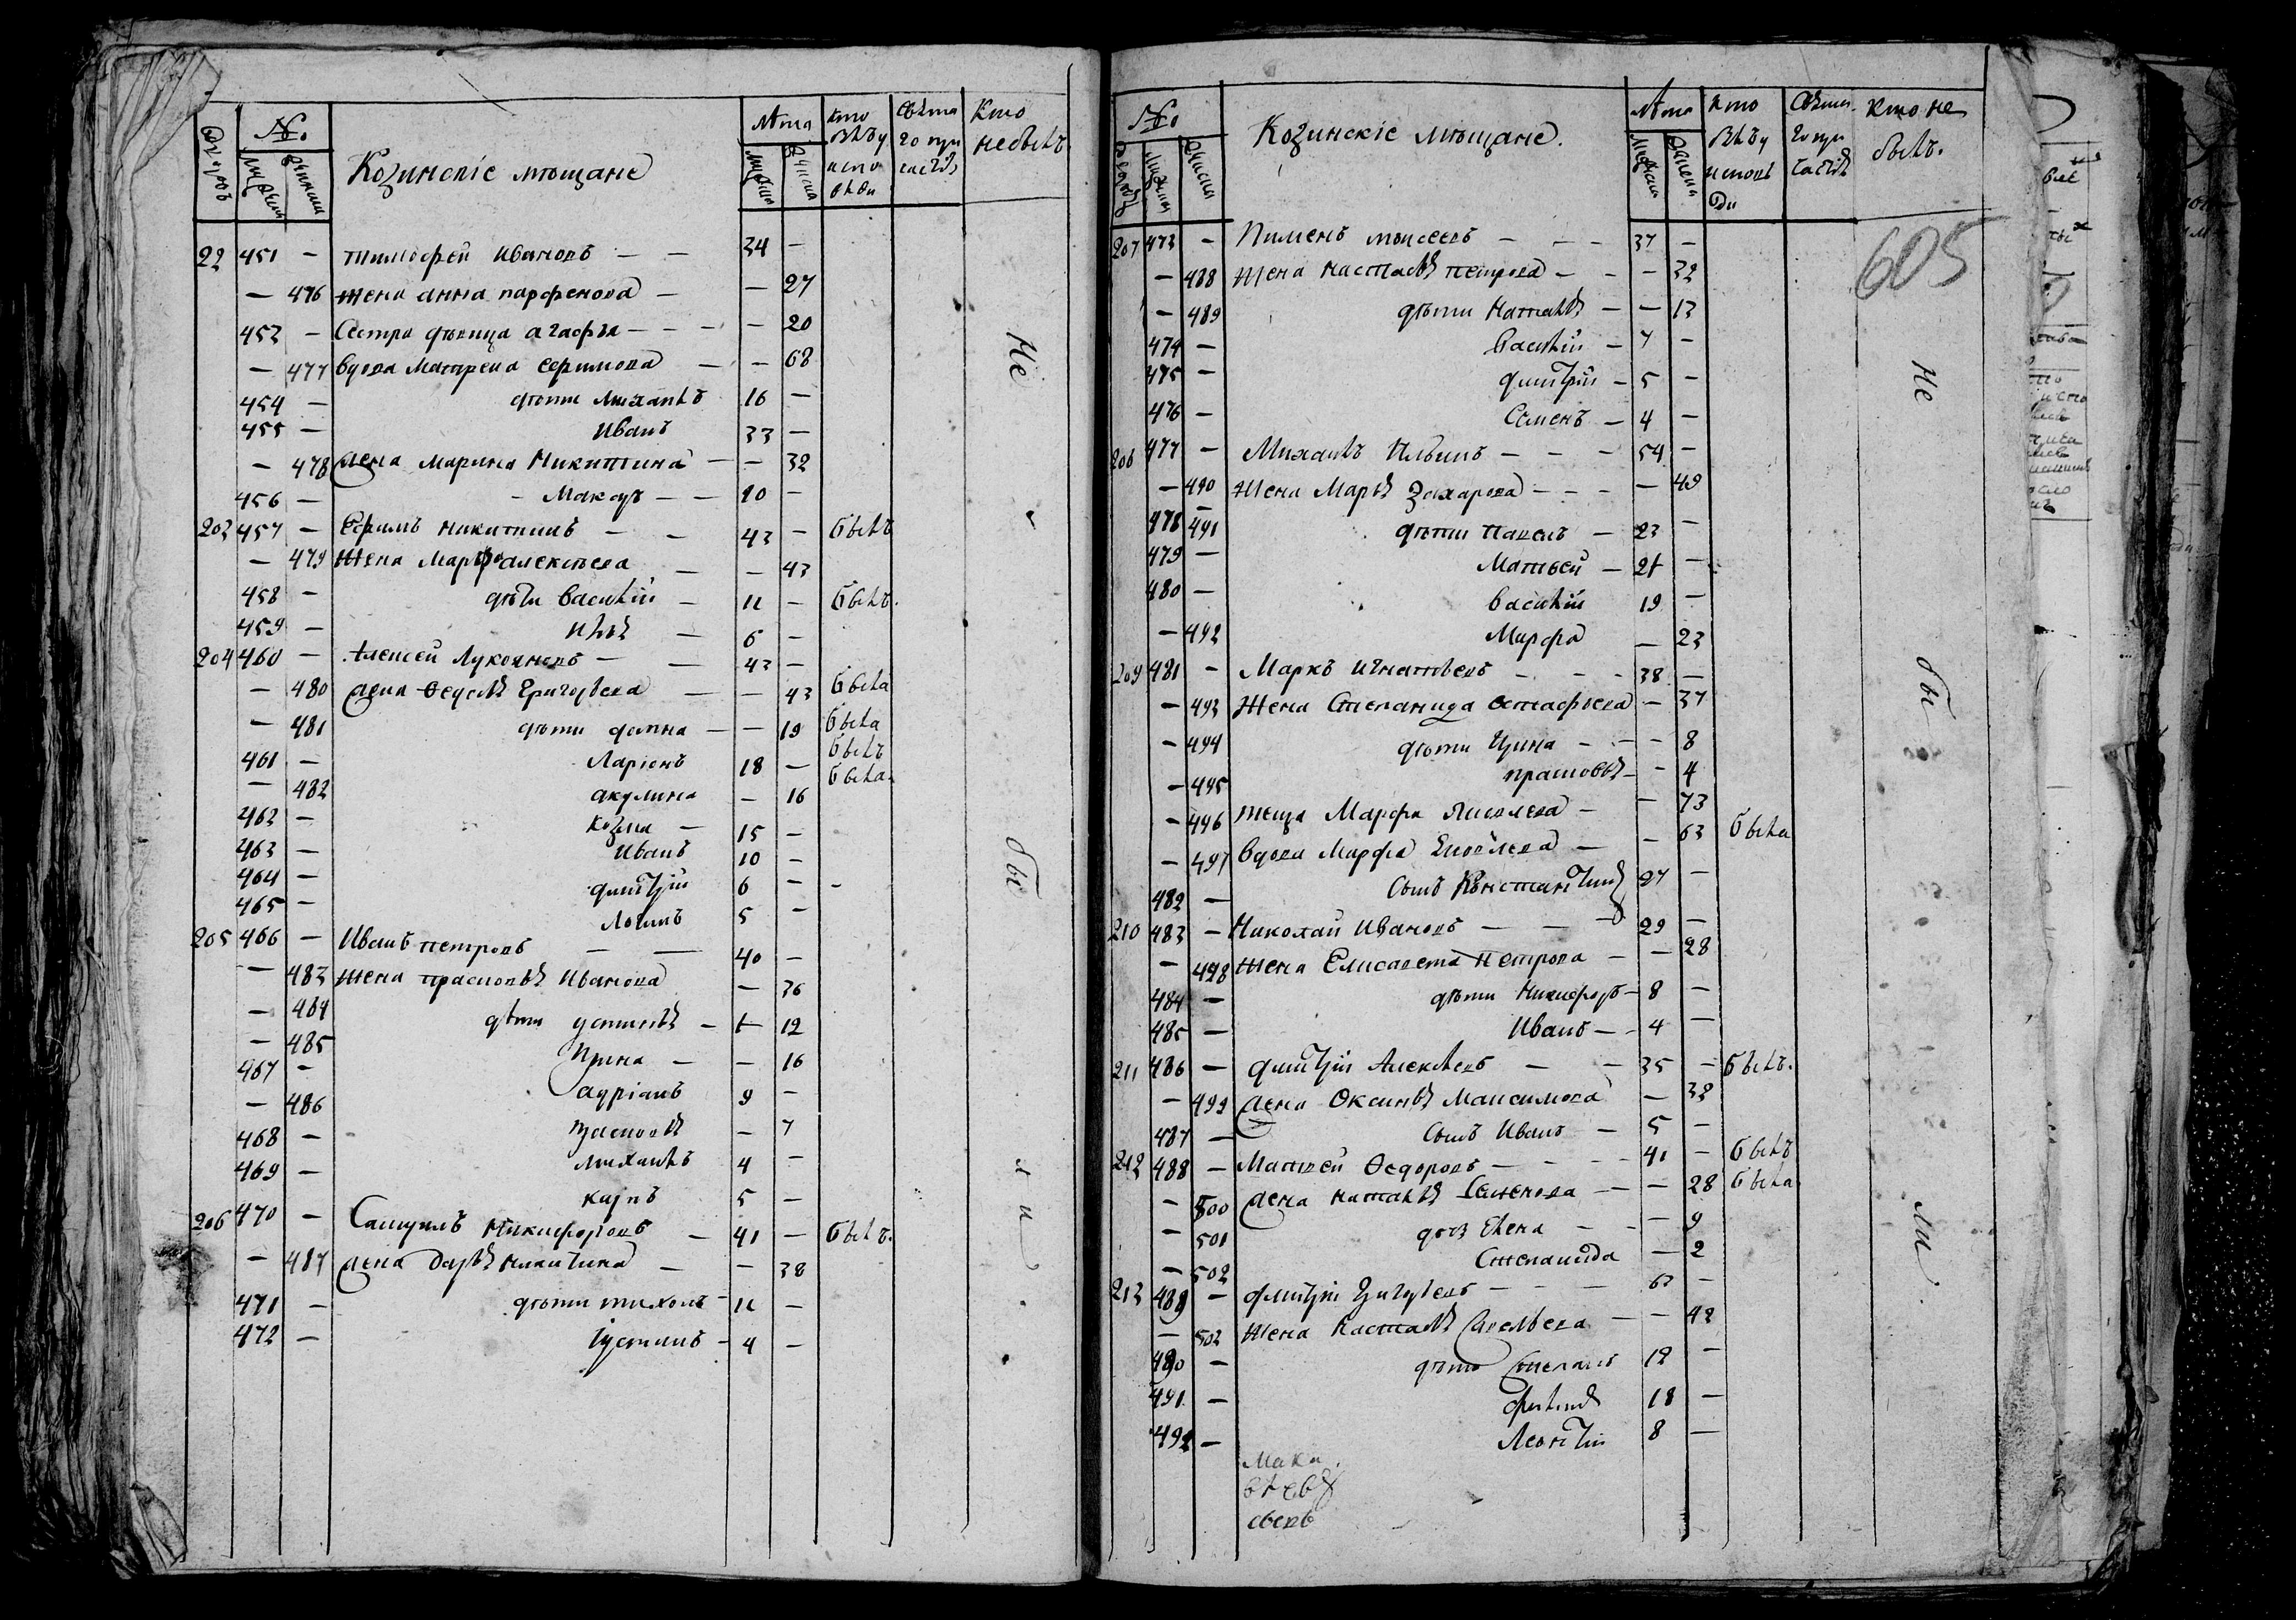 №.
Лѣта
Кто
Кто
не былъ.
Козинскіе мѣщане
22 451 — Тимофей Ивановъ — — 34 —
— 476 жена Анна Парфенова — — 27
453 — Сестра девица Агафья — — — — 20
— 477 вдова Матрена Ефимова — — 68
454 — дѣти Михаилъ 16 —
455 — Иванъ 33 —
— 478 жена Марина Никитина — — 32
456 — — Макаръ — — 10 —
203 457 — Ефимъ Никитинъ — — 43 — былъ
— 479 жена Марфа Алексѣева — — 43
458 — дѣти Василій — 11 — былъ.
459 — Илья — 6 —
204 460 — Алексей Лукояновъ — — 43 —
— 480 жена Ѳедосья Григорьева — — 43 была
— 481 дѣти Домна — — 19 была
461 — Ларіонъ 18 — былъ
— 482 Акулина — 16 была.
462 — Козма — 15 —
463 — Иванъ 10 —
464 — Дмитрій 6 — -
465 — Логинъ 5 —
205 466 — Иванъ Петровъ — — 40 —
— 483 жена Прасковья Иванова — 36
— 484 дѣти Устинья — — 12
— 485 Ирина — — 16
467 — Адріанъ 9 —
— 486 — 7
468 — Михаилъ 4 —
469 — Карпъ 5 —
206 470 — Самуилъ Никифоровъ — 41 — былъ.
— 487 жена Дарья Никитина — — 38
471 — дѣти Тихонъ — 11 —
472 — Іустинъ — 4 —
Не
бы
ли
№.
Козинскіе мѣщане.
Лѣта
Кто
Кто не
былъ.
605
207 473 — Пименъ Моисеевъ — — — 37 —
— 488 жена Настасья Петрова — — — 32
— 489 дѣти Наталья — — 13
474 — Василій — 7 —
475 — Дмитрій — 5 —
476 — Семенъ — 4 —
208 477 — Михаилъ Ильинъ — — — 54 —
— 490 жена Марья Захарова — — — — 49
478 491 дѣти Павелъ — 23 —
479 — Матвей — 21 —
480 — Василій 19 —
— 492 Марфа — 23
209 481 — Маркъ Игнатьевъ — — — 38 —
— 493 жена Степанида Астафьева — 37
— 494 дѣти Ирина — — — 8
— 495 Прасковья — — 4
— 496 теща Марфа Яковлева — — 73
— 497 вдова Марфа Яковлева — — 63 была
482 — сынъ Константинъ 27 —
210 483 — Николай Ивановъ — — 29 —
— 498 жена Елисавета Петрова — — 28
484 — дѣти Никифоръ — 8 —
485 — Иванъ — — 4 —
211 486 — Дмитрій Алексѣевъ — — 35 — былъ.
— 499 жена Оксинья Максимова — 32
487 — сынъ Иванъ — 5 —
212 488 — Матвей Ѳедоровъ — — — 41 — былъ
— 500 жена Наталья Семенова — — 28 была
— 501 Елена — — — 9
— 502 Степанида — 2
213 489 — Дмитрій Григорьевъ — — — 63 —
— 502 жена Настасья Савельева — — 42
490 — дѣти Степанъ 12 —
491 — 18 —
492 — Леонтій 8 —
Не
бы
ли.